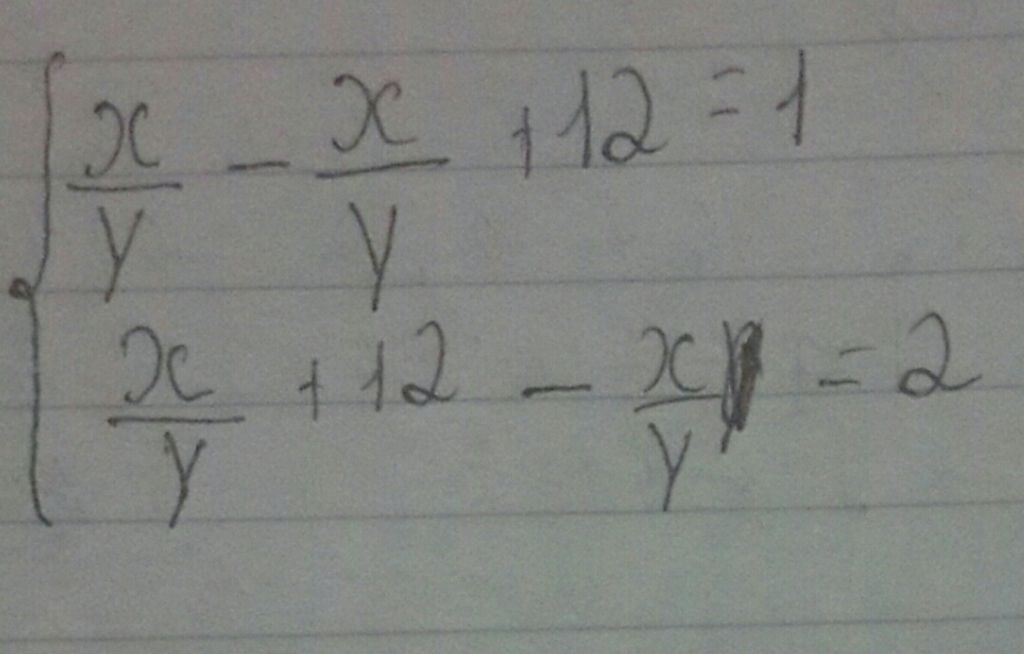 x/y - x/y + 12 = 1
x/y + 12 - x/y = 2